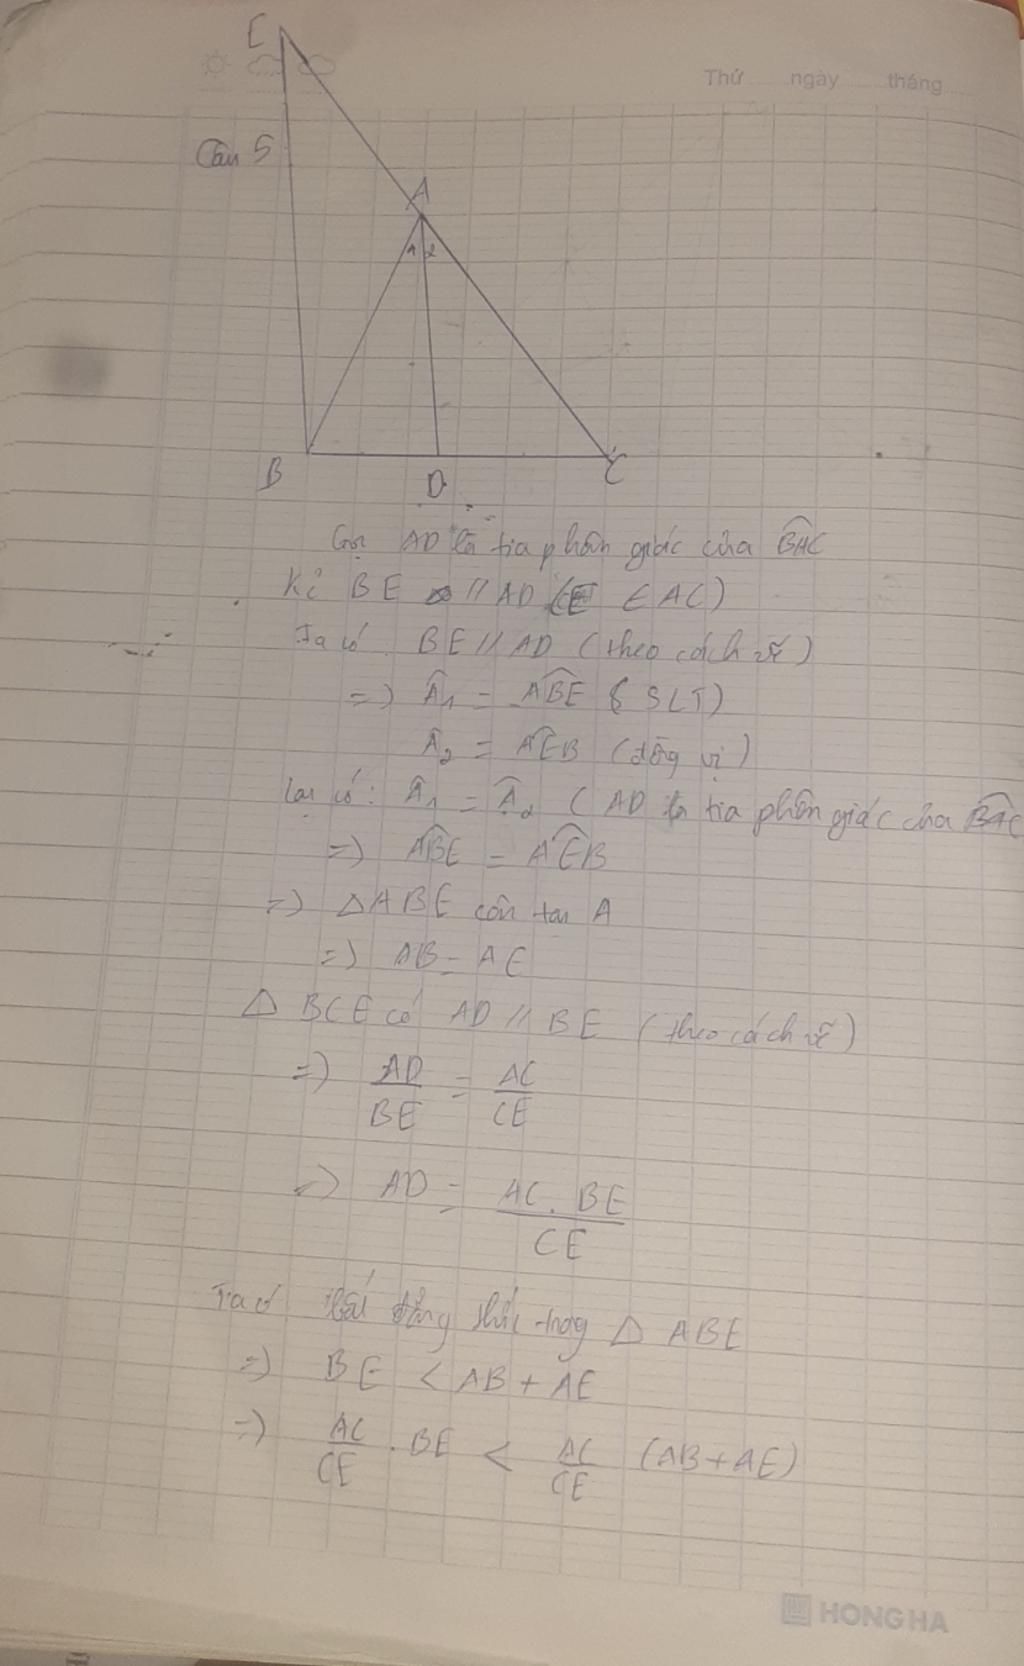 E
Thứ ngày tháng
Câu 5
A
1 2
B D C
Gọi AD là tia phân giác của BAC
Kẻ BE // AD (E ∈ AC)
Ta có BE // AD (theo cách vẽ)
=) Â1 = ABE (SLT)
Â2 = AEB (đồng vị)
Lại có: Â1 = Â2 (AD là tia phân giác của BAC
=) ABE = AEB
=) △ABE cân tại A
=) AB = AE
△ BCE có AD // BE (theo cách vẽ)
=) AD/BE = AC/CE
=) AD = AC . BE/CE
Ta có bất đẳng thức trong △ ABE
=) BE < AB + AE
=) AC/CE . BE < AC/CE (AB + AE)
HONG HA